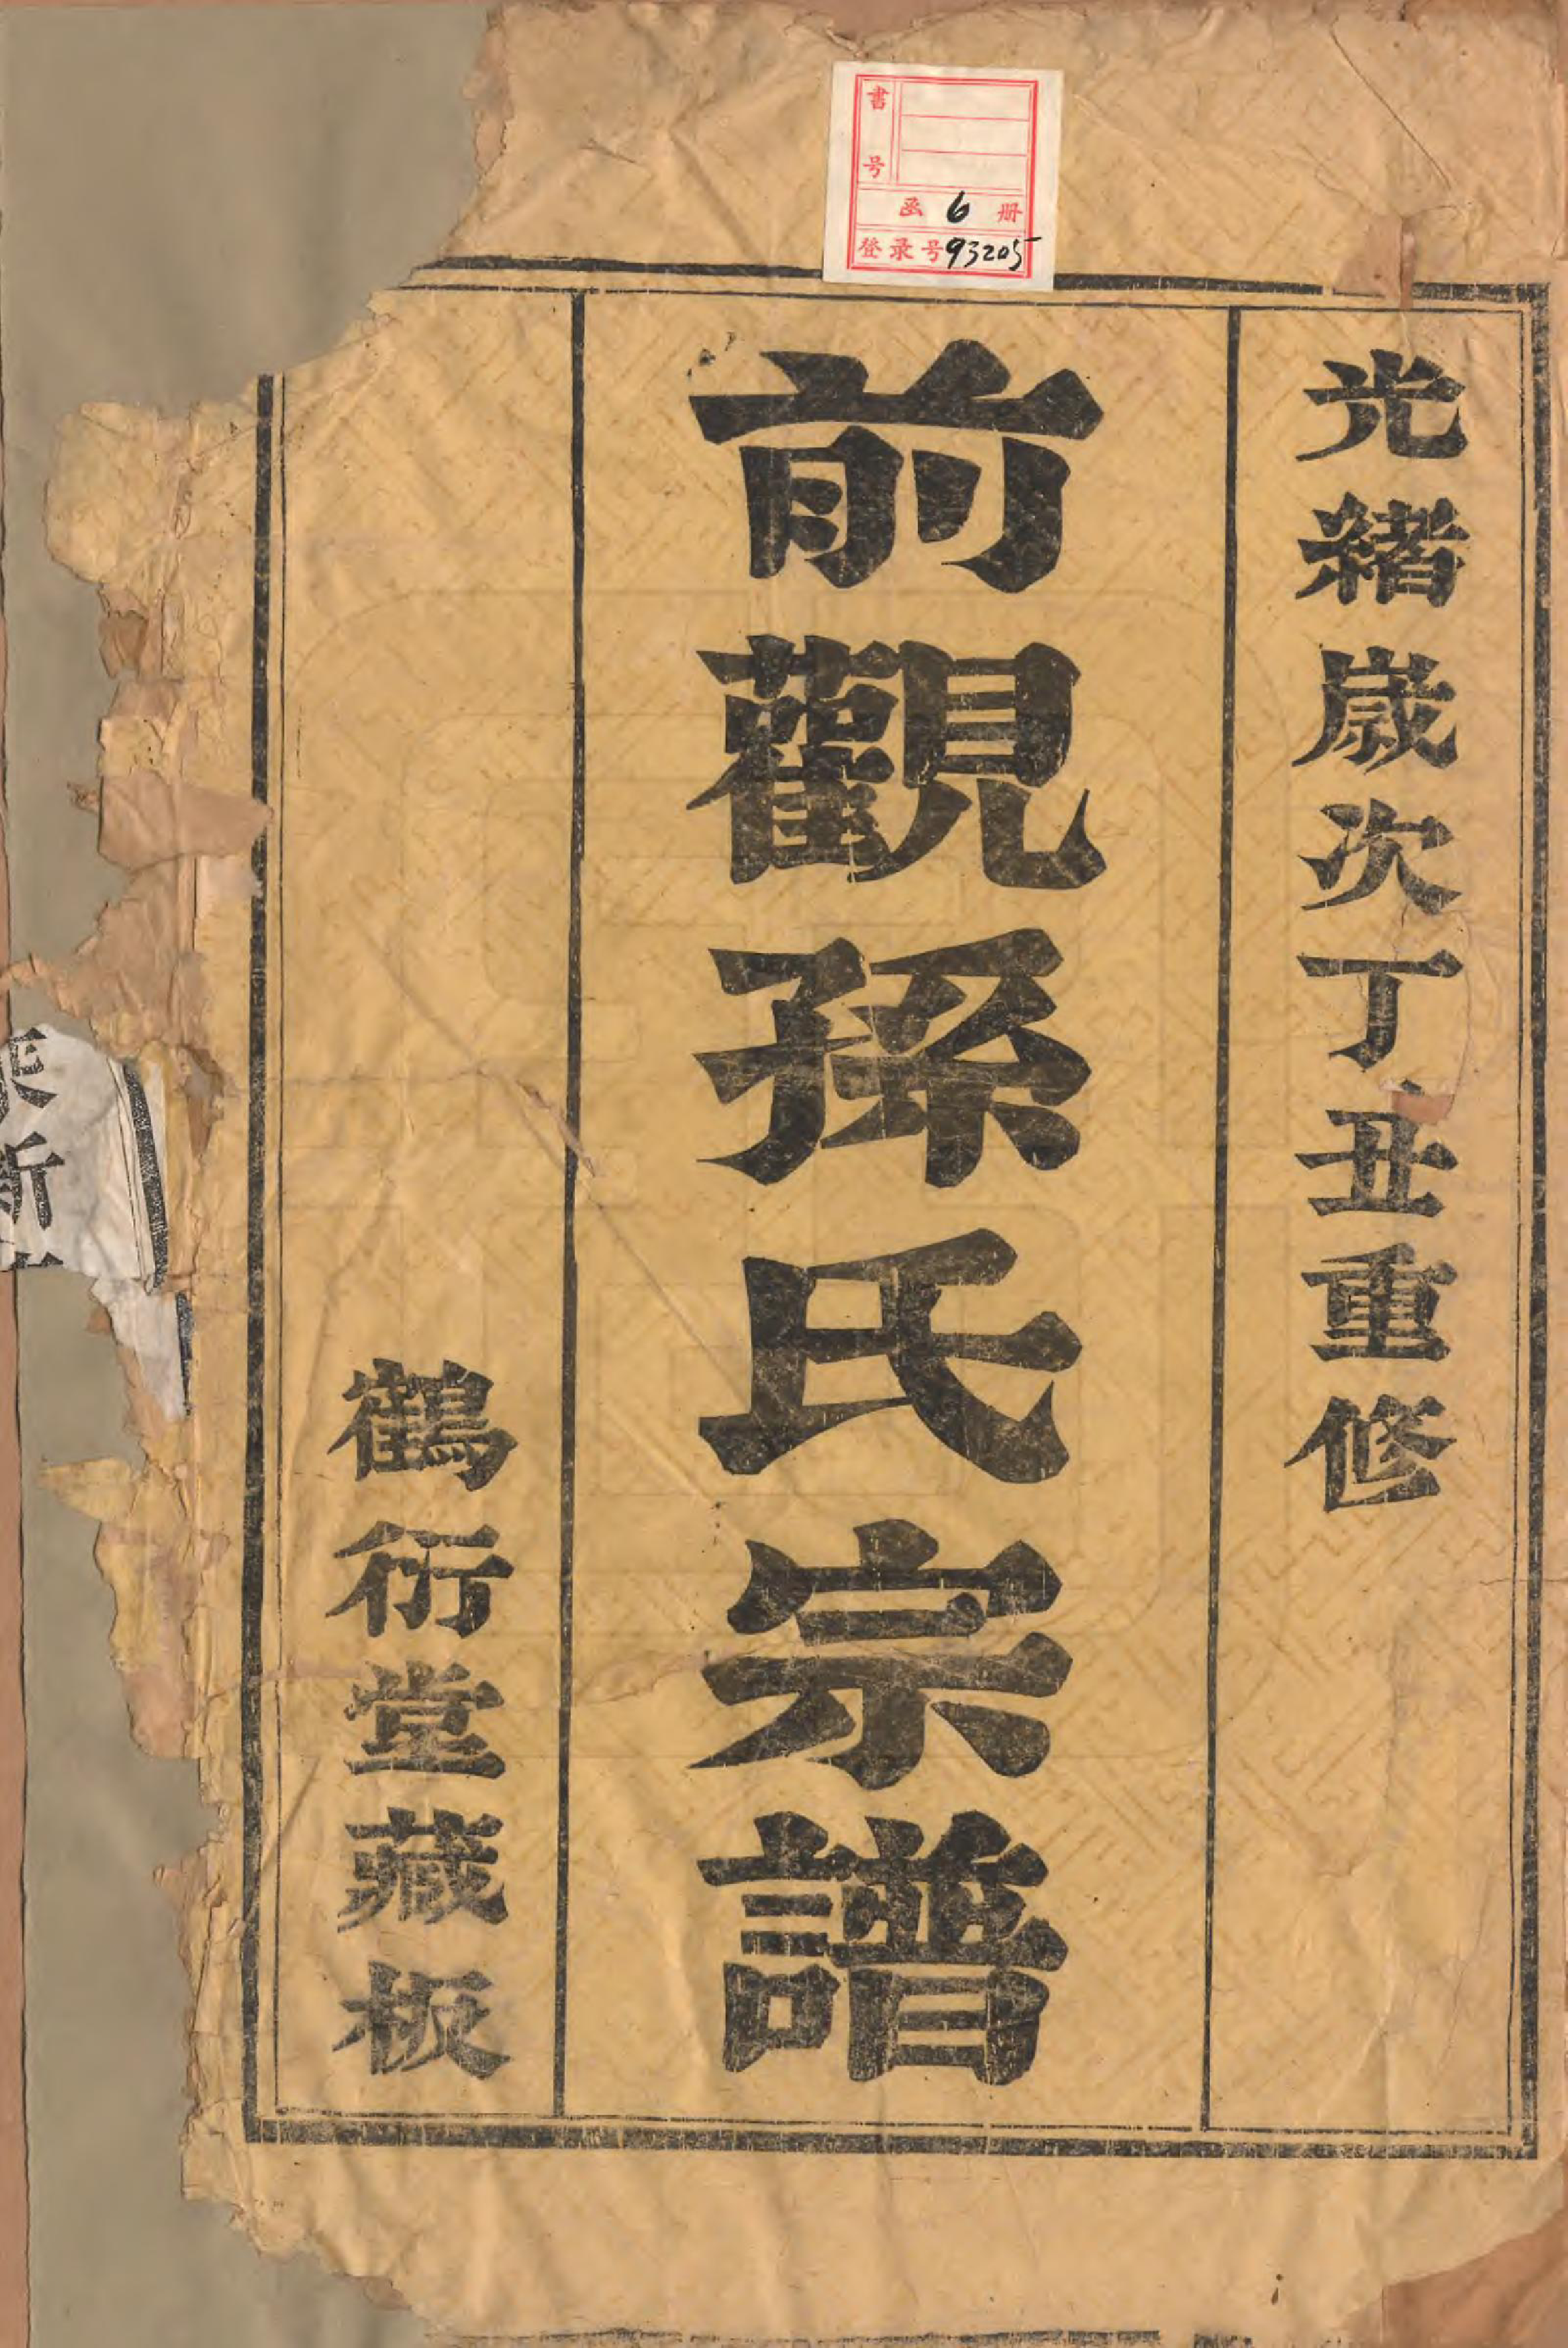 光緒歲次丁丑重修
前觀孫氏宗譜
鶴衍堂藏板
書号
函 6 册
登录号 93205